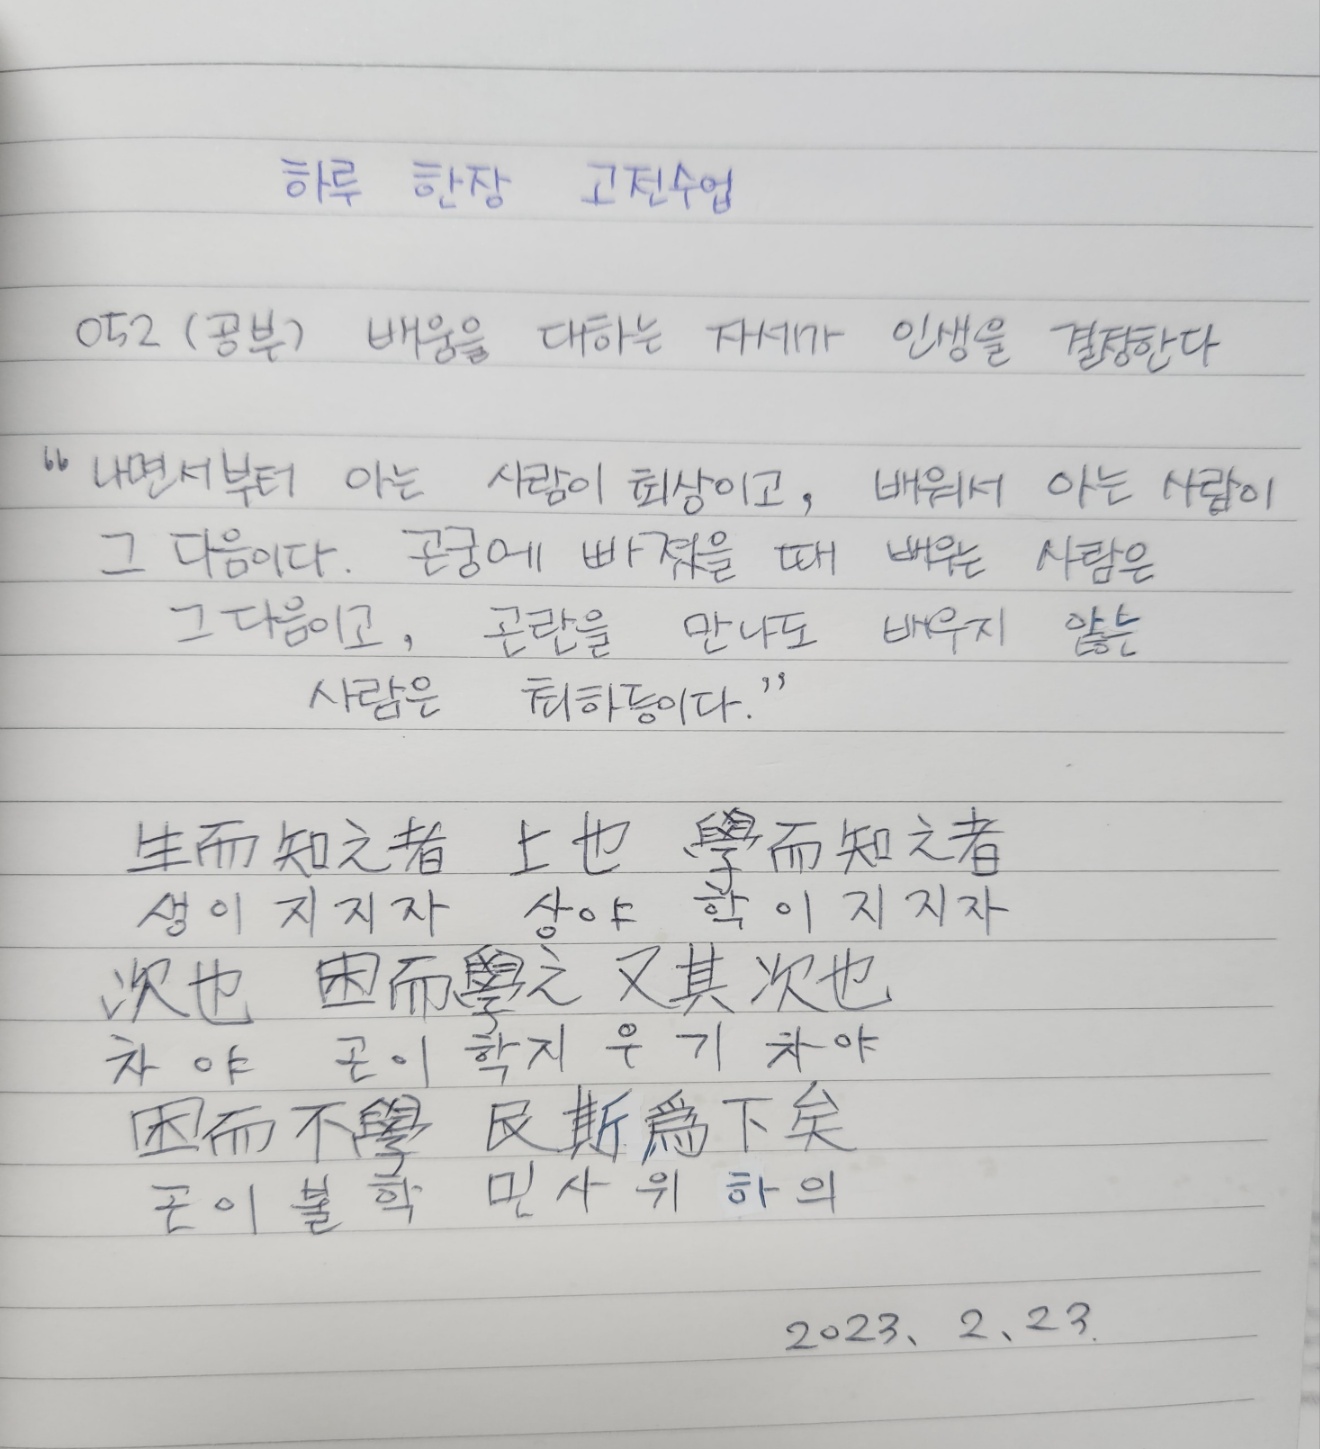 하루 한장 고전수업
052 (공부) 배움을 대하는 자세가 인생을 결정한다
“나면서부터 아는 사람이 최상이고, 배워서 아는 사람이
그 다음이다. 곤궁에 빠졌을 때 배우는 사람은
그 다음이고, 곤란을 만나도 배우지 않는
사람은 최하등이다.”
生而知之者 上也 學而知之者
생이지지자 상야 학이지지자
次也 困而學之 又其次也
차야 곤이학지 우기차야
困而不學 民斯爲下矣
곤이불학 민사위하의
2023. 2. 23.